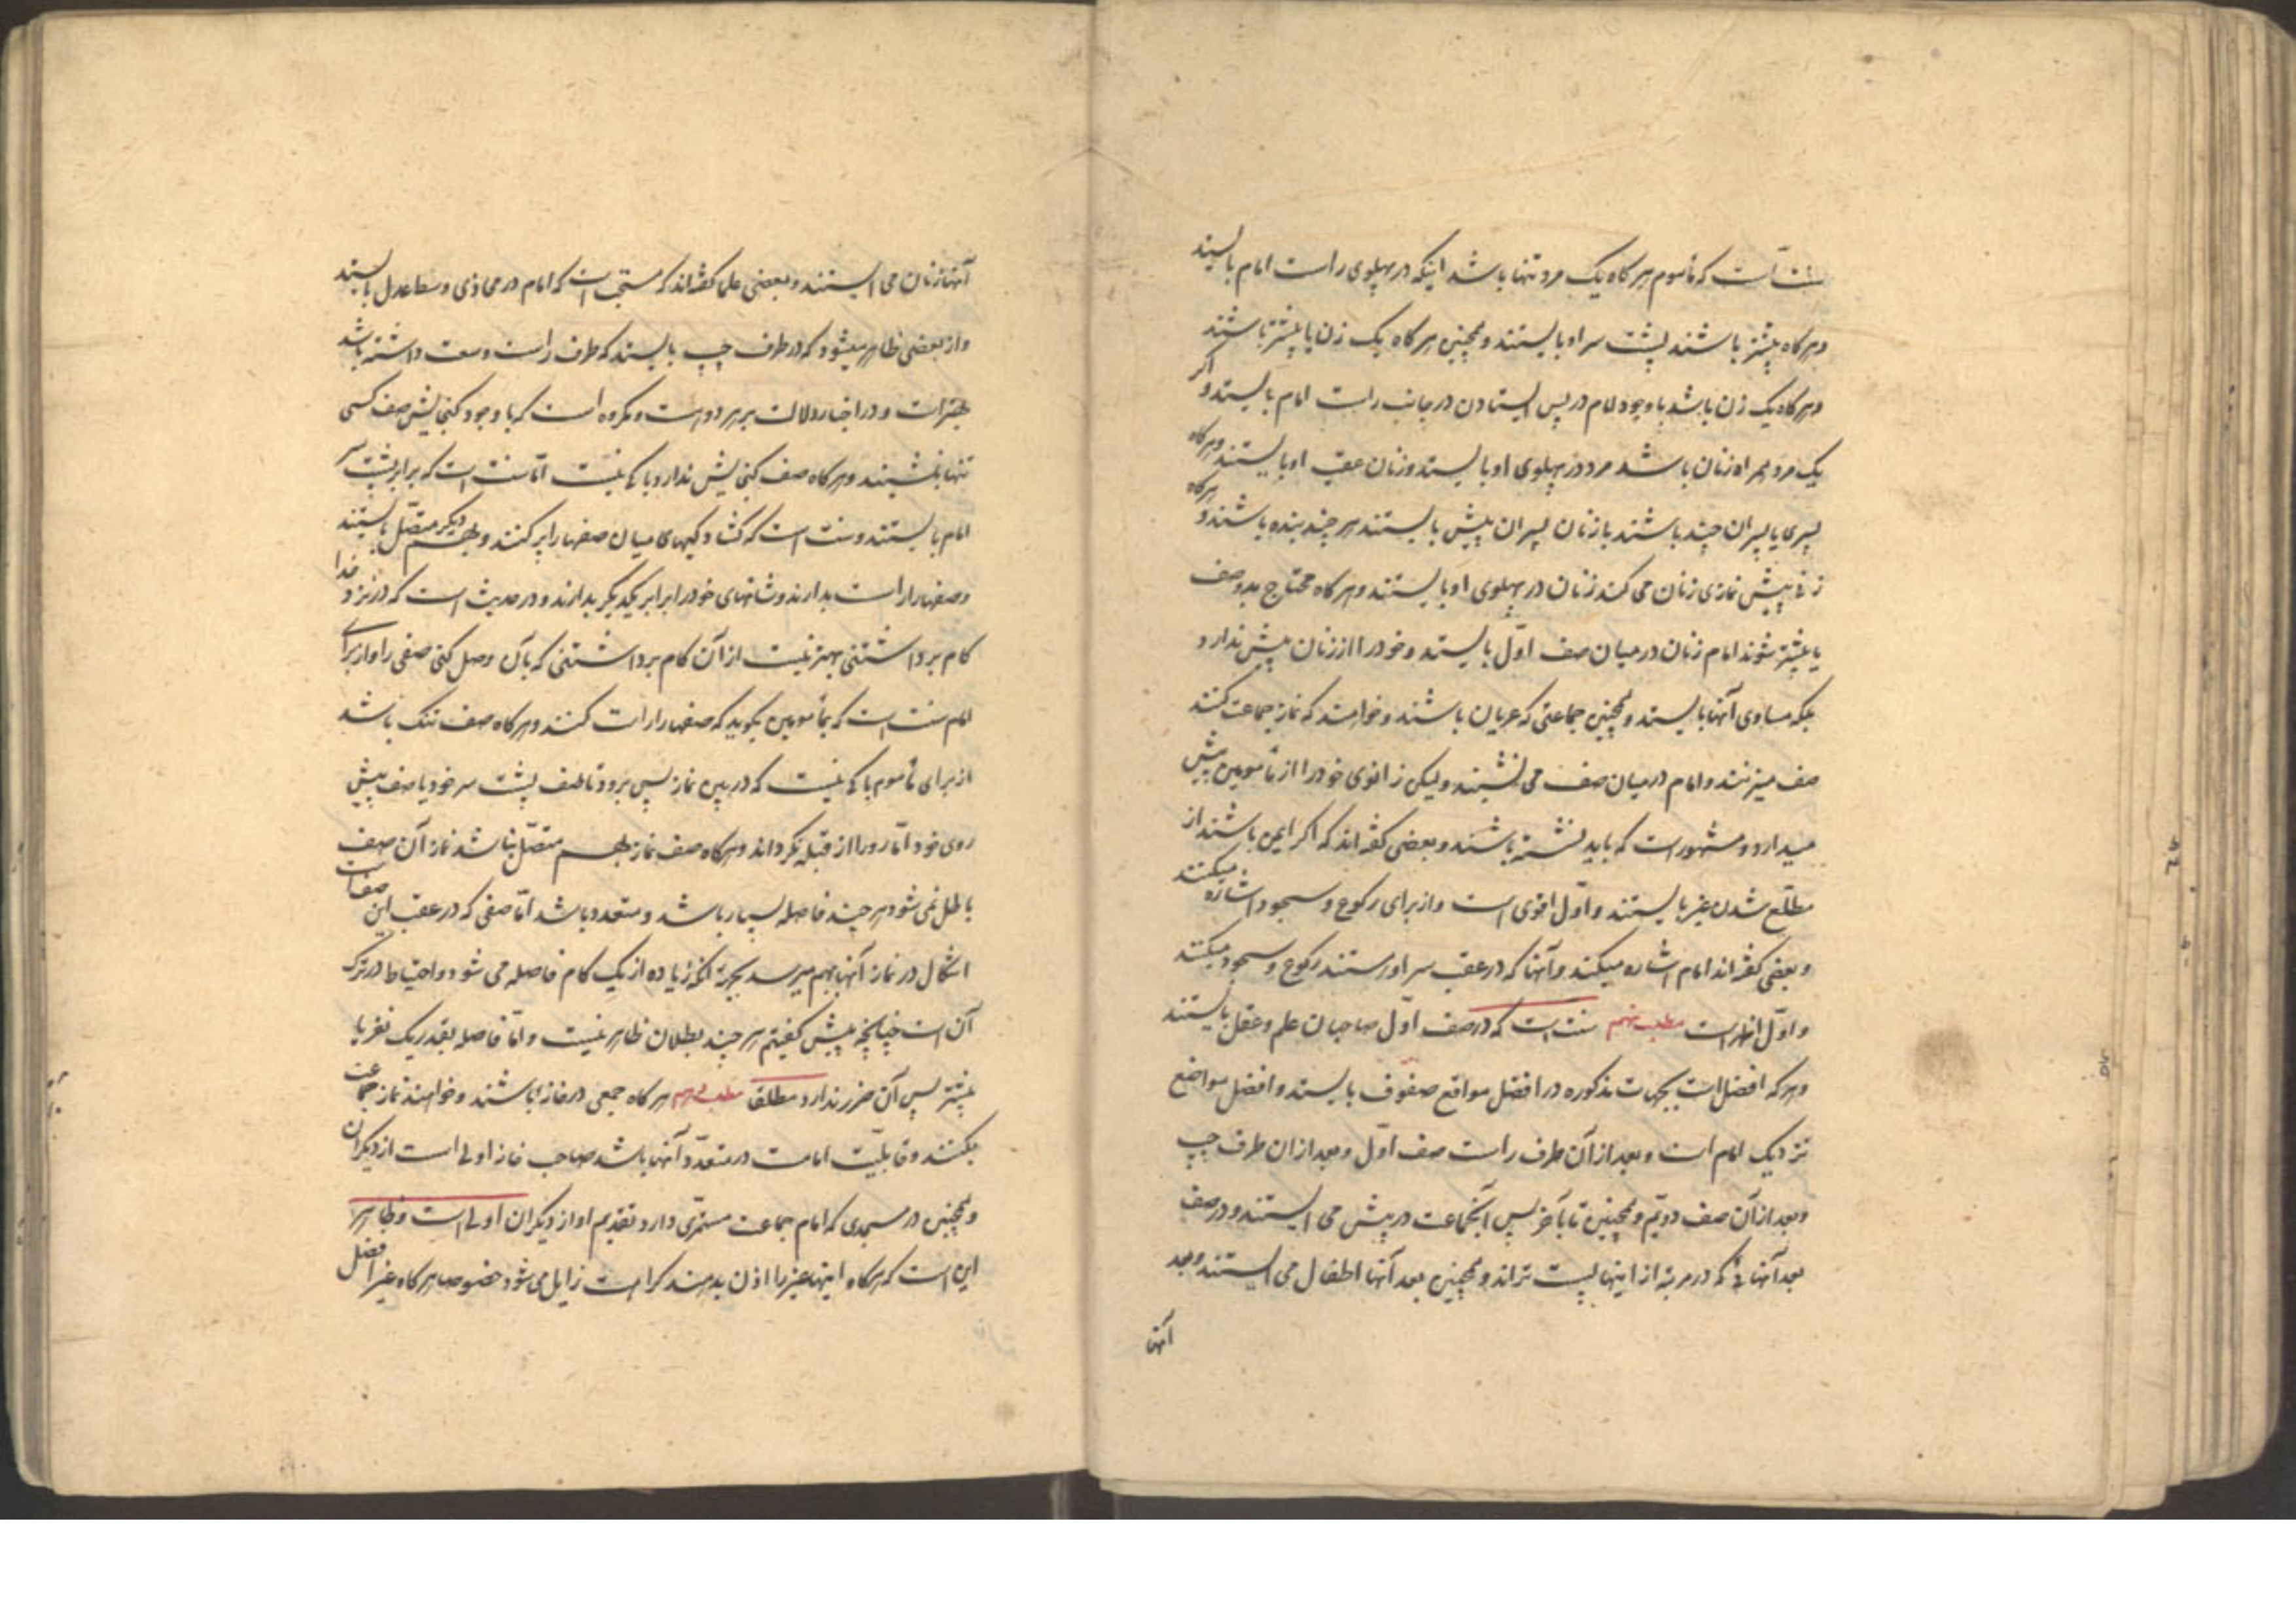 سنت است که مأموم هرگاه یک مرد تنها باشد اینکه در پهلوی راست امام بایستد
و هرگاه بیشتر باشند پشت سر او بایستند و همچنین هرگاه یک زن یا بیشتر باشند
و هرگاه یک زن باشد با وجود امام در پس ایستادن در جانب راست امام بایستد و اکر
یک مرد همراه زنان باشد مرد در پهلوی او بایستد و زنان عقب او بایستند و هرگاه
پسری یا پسران چند باشند با زنان پسران پیش بایستند هر چند بنده باشند و هرگاه
زنی پیش نمازی زنان می کند زنان در پهلوی او بایستند و هرگاه محتاج بدو صف
یا بیشتر شوند امام زنان در میان صف اوّل بایستد و خود را از زنان پیش ندارد
بلکه مساوی آنها بایستد و همچنین جماعتی که عریان باشند و خواهند که نماز جماعت کنند
صف میزنند و امام در میان صف می نشیند و لیکن زانوی خود را از مأمومین پیش
میدارد و مشهور است که باید نشسته باشند و بعضی گفته اند که اکر ایمن باشند از
مطلّع شدن غیر بایستند و اوّل اقوی است و از برای رکوع و سجود اشاره میکنند
و بعضی گفته اند امام اشاره میکند و آنها که در عقب سر اورستند رکوع و سجود میکنند
و اوّل اظهر است مطلب نهم سنت است که در صف اوّل صاحبان علم و عقل بایستند
و هر که افضل است بجهات مذکوره در افضل مواقع صفوف بایستد و افضل مواضع
نزدیک امام است و بعد از آن طرف راست صف اوّل و بعد از ان طرف چپ
و بعد از آن صف دویّم و همچنین تا بآخر پس آنجماعت در پیش می ایستند و در صف
بعد آنهائی که در مرتبه از اینها پست تراند و همچنین بعد آنها اطفال می ایستند و بعد
آنها
آنها زنان می ایستند و بعضی علما گفته اند که مستحب است که امام در محاذی وسط اعدل بایستد
و از بعضی ظاهر میشود که در طرف چپ بایستد که طرف راست وسعت داشته باشد
بهتر است و در اخبار دلالت بر هر دو هست و مکروه است که با وجود کنجایش صف کسی
تنها بایستد و هرگاه صف کنجایش ندارد باکی نیست امّا سنت است که برابر پشت سر
امام بایستند و سنت است که کشادکیهای میان صفها را پر کنند و بهم دیگر متصّل بایستند
و صفها را راست بدارند و شانهای خود را برابر یکدیگر بدارند و در حدیث است که در نزد خدا
کام برداشتنی بهتر نیست از آن کام برداشتنی که بآن وصل کنی صفی را و از برای
امام سنت است که بمأمومین بگوید که صفها را راست کنند و هرگاه صف تنک باشد
از برای مأموم باکی نیست که در بین نماز پس برود تا صف پشت سر خود یا صف پیش
روی خود امّا رو را از قبله نکرداند و هرگاه صف نماز بهم متصّل نباشد نماز آن صف
باطل نمی شود هر چند فاصله بسیار باشد و متعدد باشد امّا صفی که در عقب این صفهاست
اشکال در نماز آنها بهم میرسد بجهة آنکه زیاده از یک کام فاصله می شود و احتیاط در ترک
آن است چنانچه پیش کفتیم هر چند بطلان ظاهر نیست و امّا فاصله بقدر یک نفر یا
بیشتر پس آن ضرر ندارد مطلقا مطلب دهم هرگاه جمعی در خانهٔ باشند و خواهند نماز جماعت
بکنند و قابلیّت امامت در متعدّد آنها باشد صاحب خانه اولی است از دیکران
و همچنین در مسجدی که امام جماعت مستمرّی دارد تقدیم او از دیگران اولی است و ظاهر
این است که هرگاه اینها غیر را اذن بدهند کراهت زایل می شود خصوصا هرگاه غیر افضل